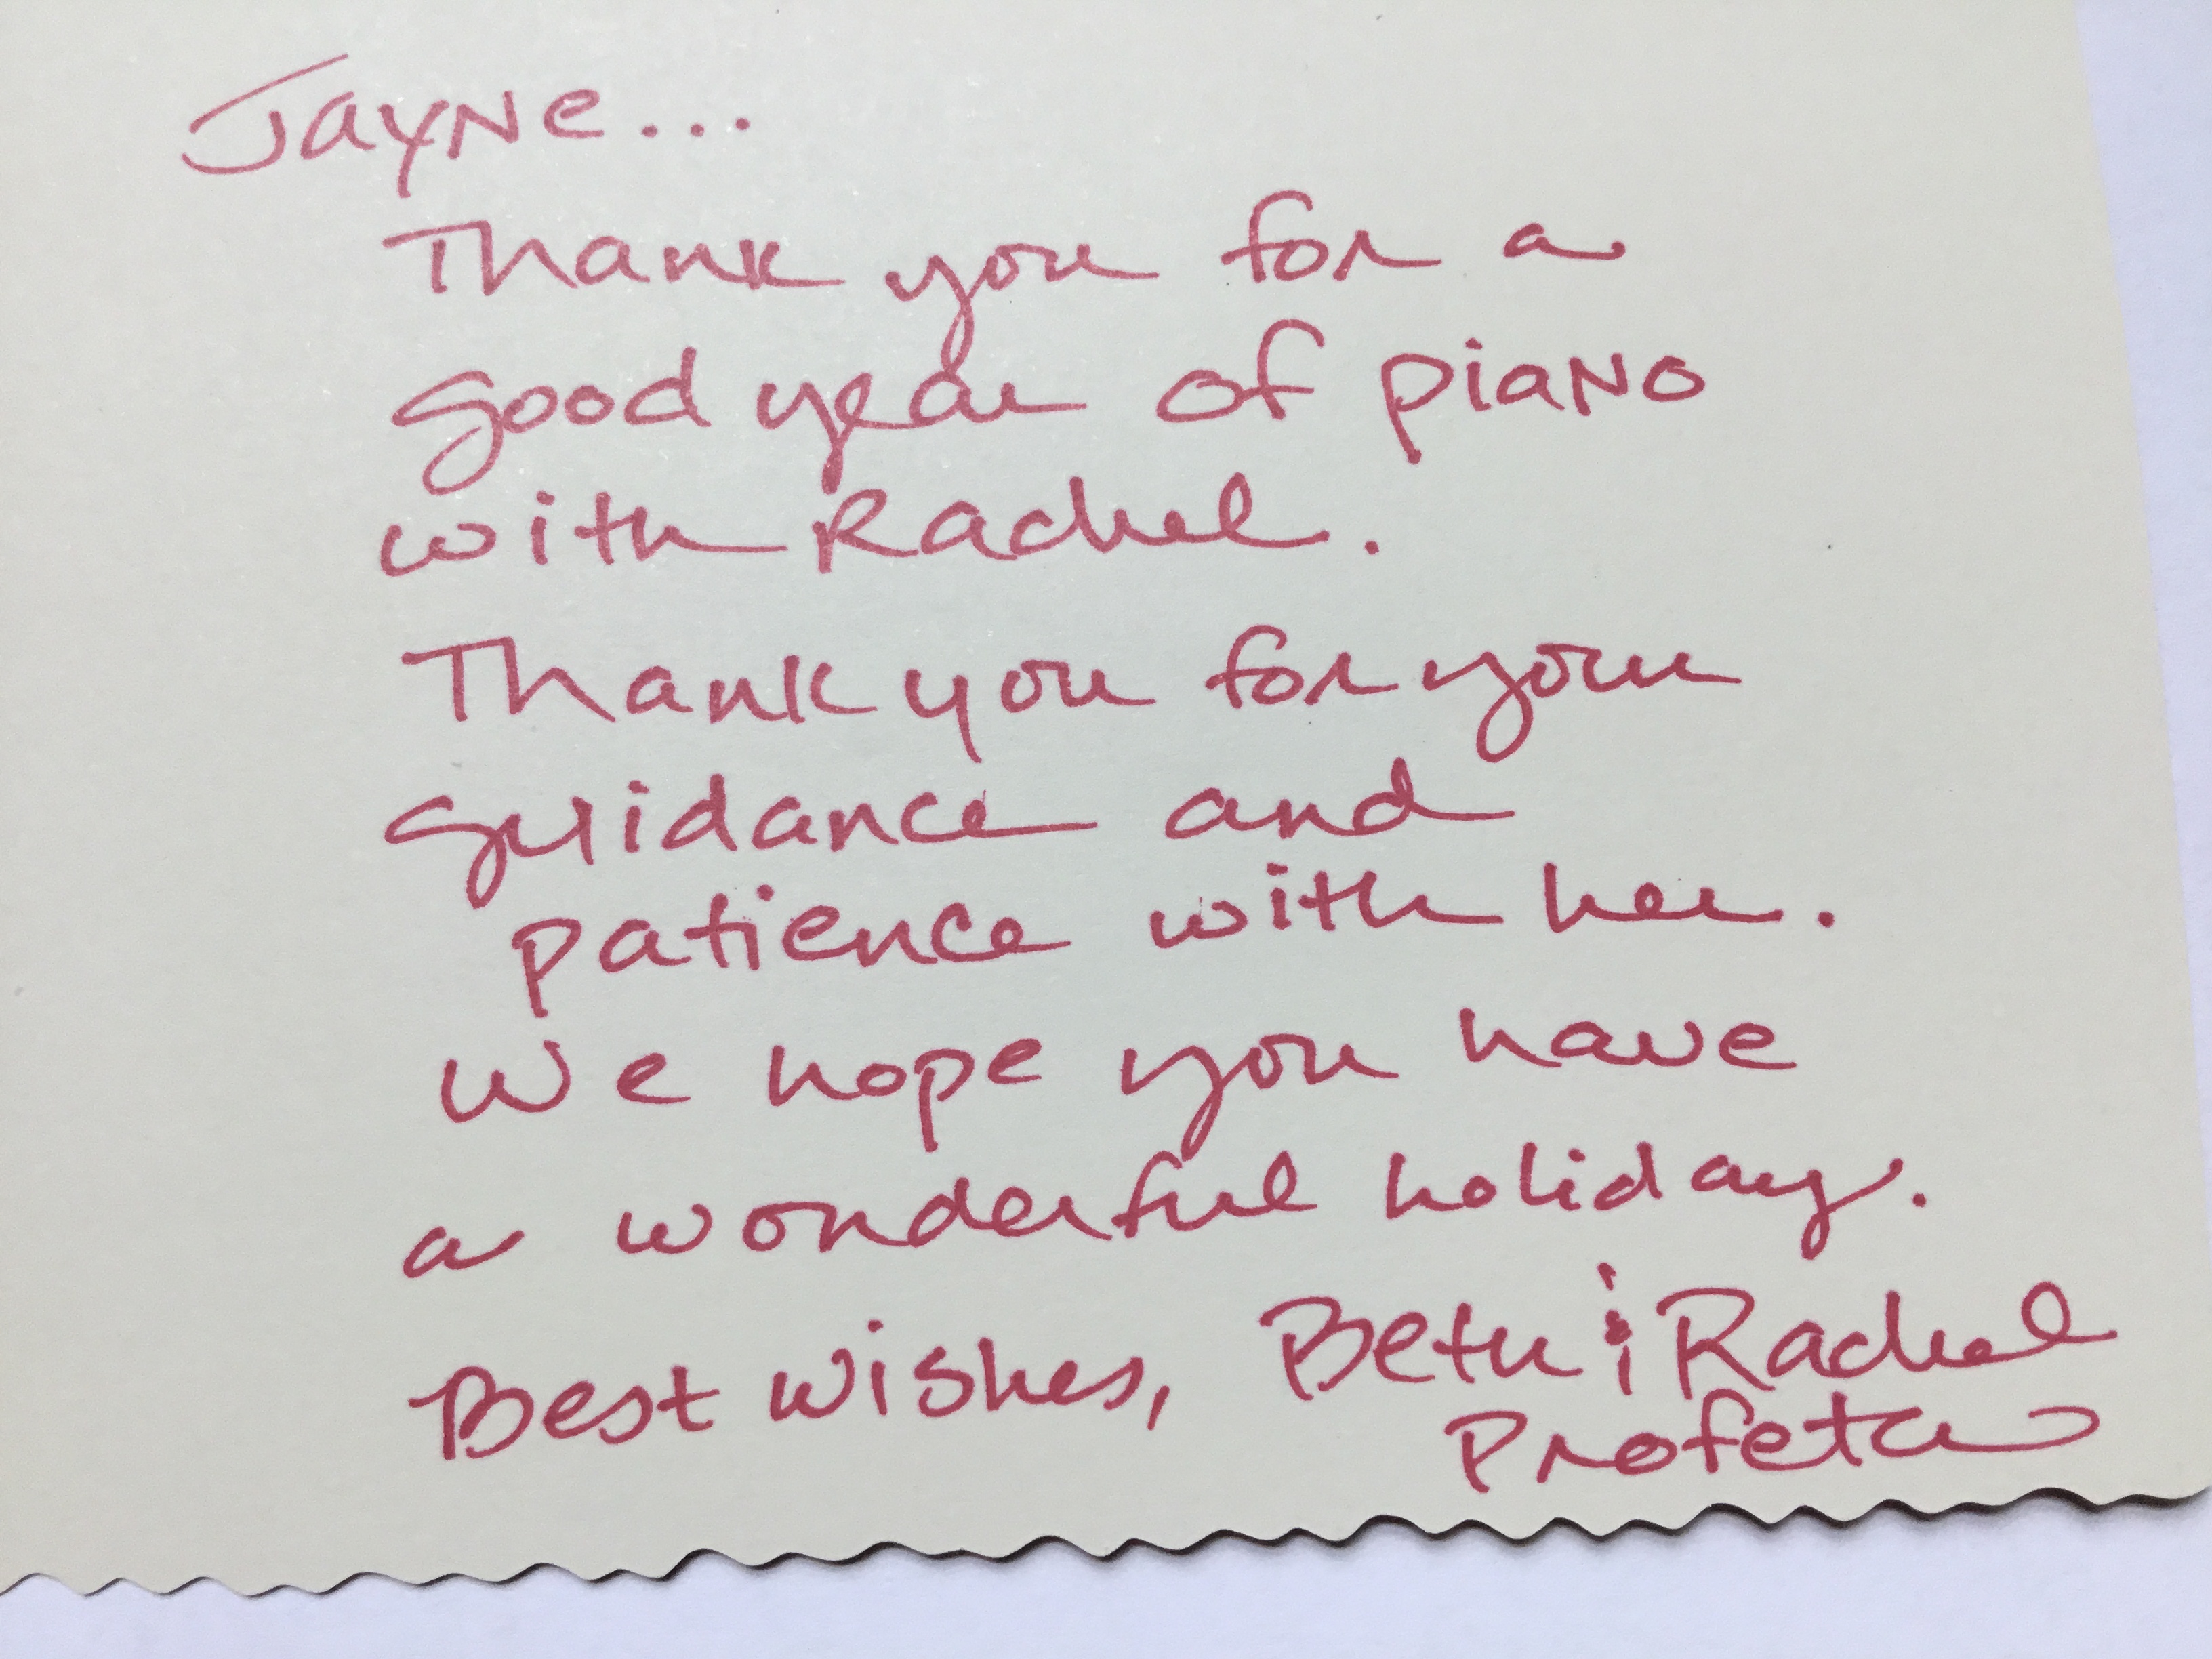 Jayne...
Thank you for a
good year of piano
with Rachel.
Thank you for your
guidance and
patience with her.
We hope you have
a wonderful holiday.
Best wishes, Beth & Rachel
Profeta